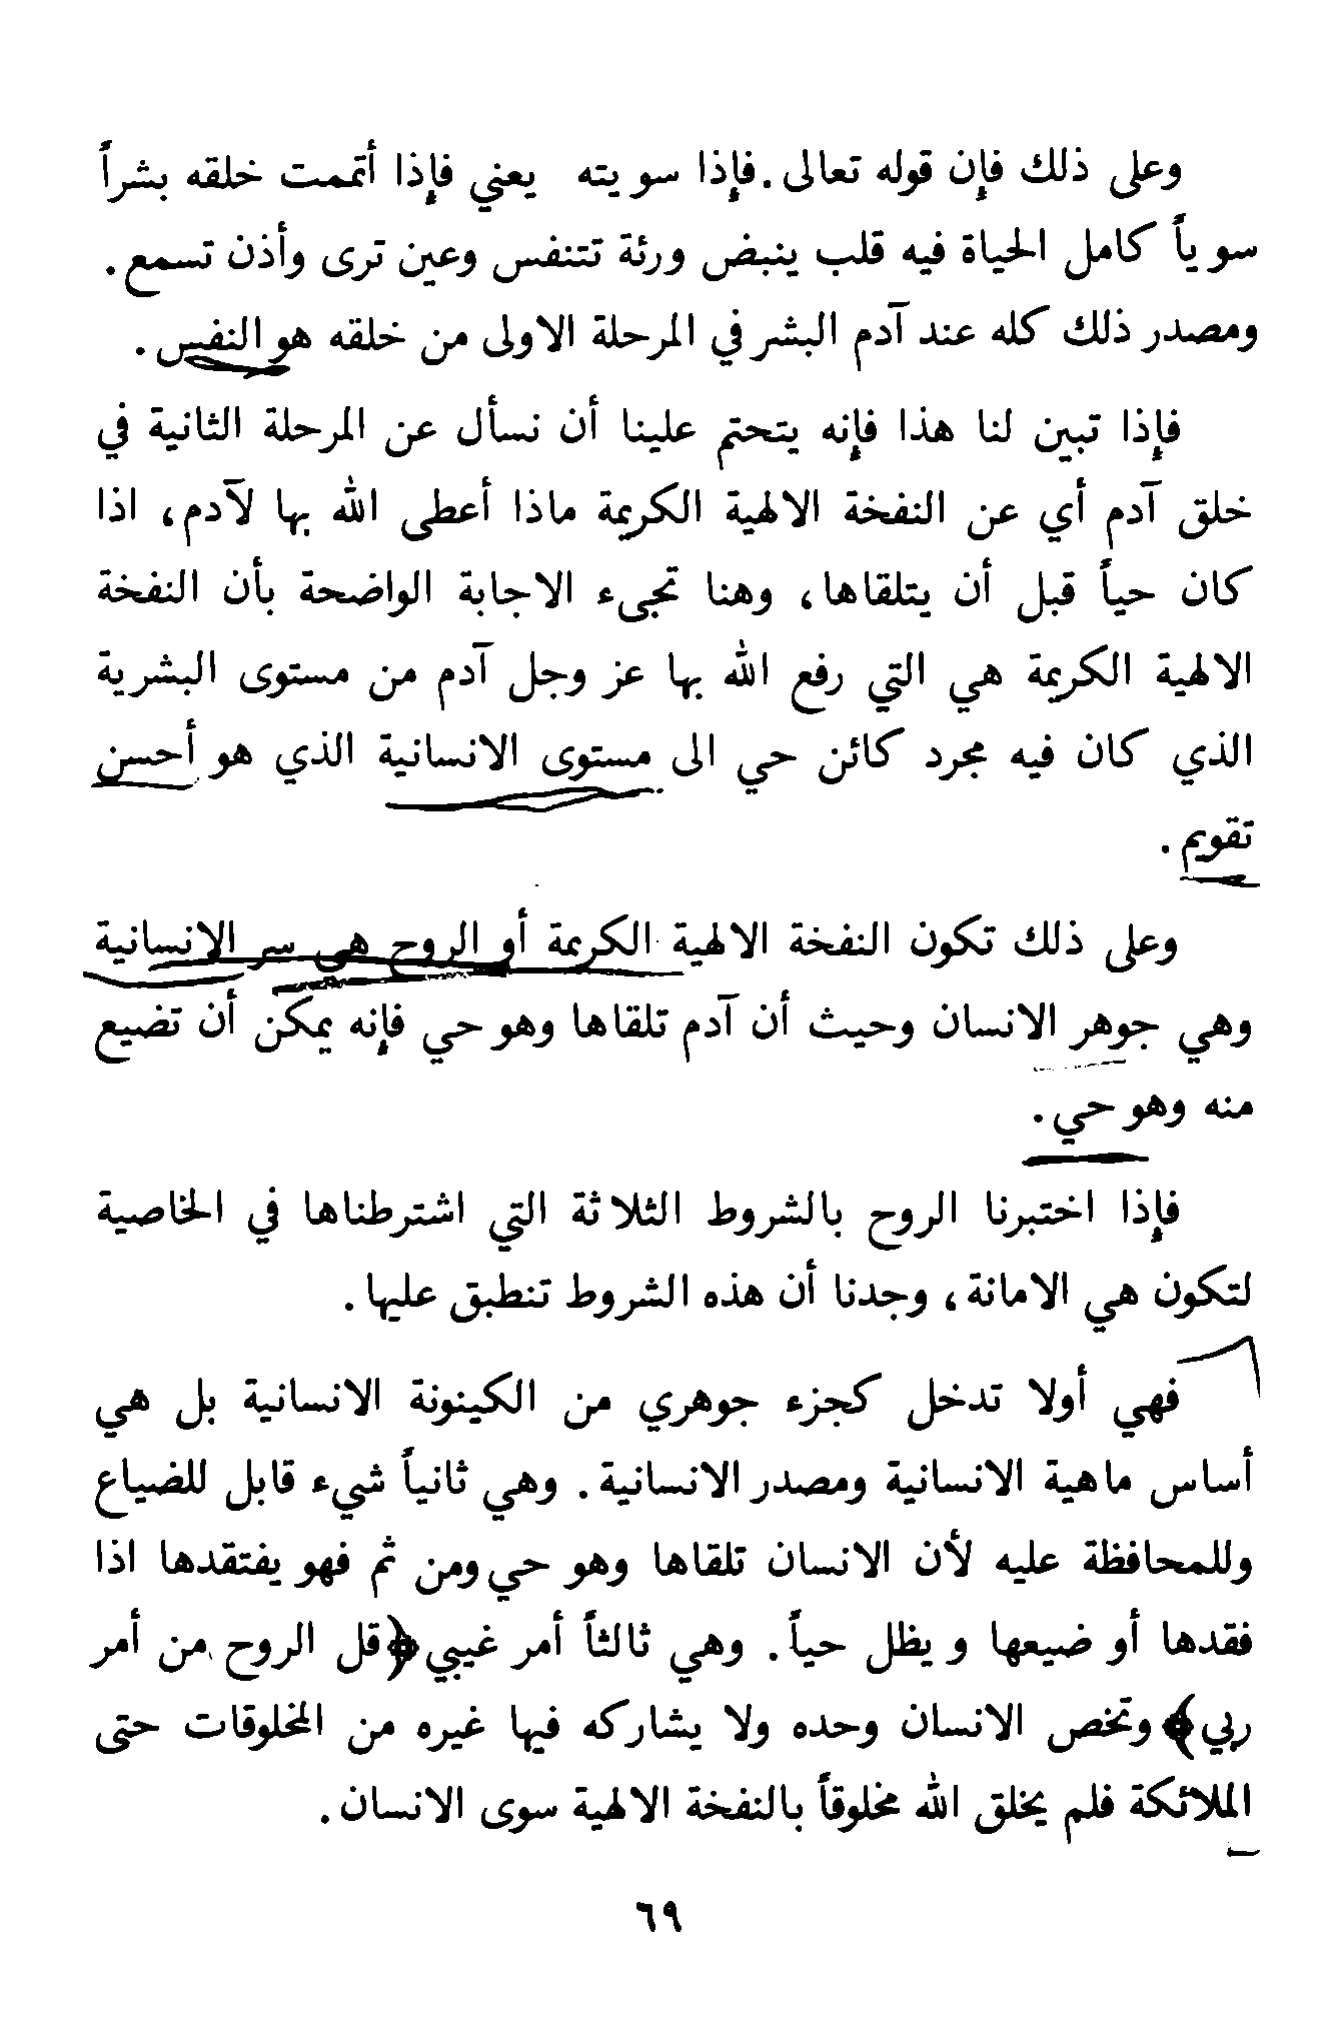 وعلى ذلك فإن قوله تعالى . فإذا سويته يعني فإذا أتممت خلقه بشراً
سوياً كامل الحياة فيه قلب ينبض ورئة تتنفس وعين ترى وأذن تسمع .
ومصدر ذلك كله عند آدم البشر في المرحلة الاولى من خلقه هو النفس .
فإذا تبين لنا هذا فإنه يتحتم علينا أن نسأل عن المرحلة الثانية في
خلق آدم أي عن النفخة الالهية الكريمة ماذا أعطى الله بها لآدم ، اذا
كان حياً قبل أن يتلقاها ، وهنا تجىء الاجابة الواضحة بأن النفخة
الالهية الكريمة هي التي رفع الله بها عز وجل آدم من مستوى البشرية
الذي كان فيه مجرد كائن حي الى مستوى الانسانية الذي هو أحسن
تقويم .
وعلى ذلك تكون النفخة الالهية الكريمة أو الروح هي سر الانسانية
وهي جوهر الانسان وحيث أن آدم تلقاها وهو حي فإنه يمكن أن تضيع
منه وهو حي .
فإذا اختبرنا الروح بالشروط الثلاثة التي اشترطناها في الخاصية
لتكون هي الامانة ، وجدنا أن هذه الشروط تنطبق عليها .
فهي أولا تدخل كجزء جوهري من الكينونة الانسانية بل هي
أساس ماهية الانسانية ومصدر الانسانية . وهي ثانياً شيء قابل للضياع
وللمحافظة عليه لأن الانسان تلقاها وهو حي ومن ثم فهو يفتقدها اذا
فقدها أو ضيعها ويظل حياً . وهي ثالثاً أمر غيبي ﴿قل الروح من أمر
ربي﴾ وتخص الانسان وحده ولا يشاركه فيها غيره من المخلوقات حتى
الملائكة فلم يخلق الله مخلوقاً بالنفخة الالهية سوى الانسان .
٦٩